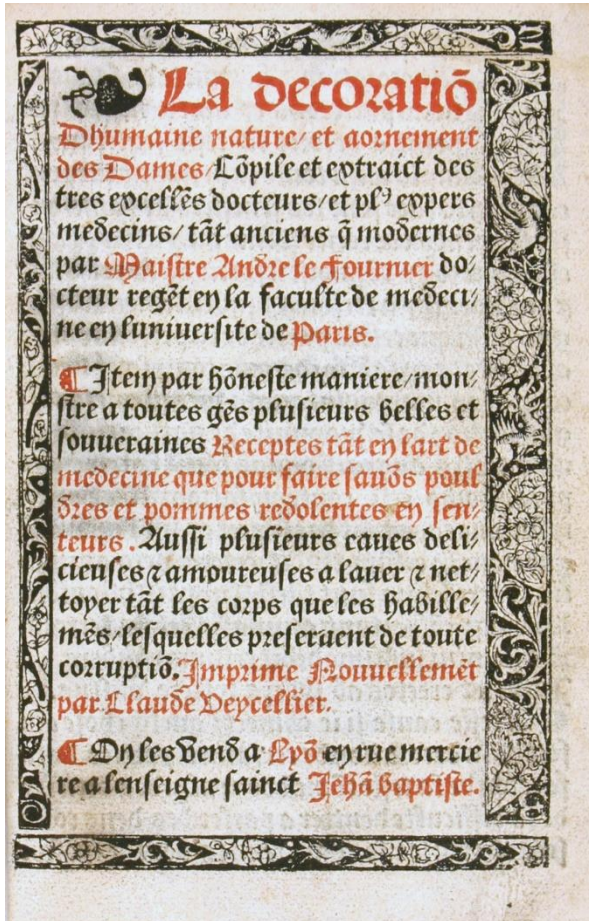 La decoratiõ
Dhumaine nature/ et aornement
des Dames/ Cõpile et extraict des
tres excellẽs docteurs/ et plꝰ expers
medecins/ tãt anciens q̃ modernes
par Maistre Andre le Fournier do/
cteur regẽt en la faculte de medeci/
ne en luniuersite de Paris.
¶ Item par hõneste maniere/ mon/
stre a toutes gẽs plusieurs belles et
souueraines Receptes tãt en lart de
medecine que pour faire sauõs poul
dres et pommes redolentes en sen/
teurs. Aussi plusieurs eaues deli/
cieuses ⁊ amoureuses a lauer ⁊ net/
toyer tãt les corps que les habille/
mẽs/ lesquelles preseruent de toute
corruptiõ. Imprime Nouuellemẽt
par Claude Veycellier.
¶ On les vend a Lyõ en rue mercie
re a lenseigne sainct Jehã baptiste.